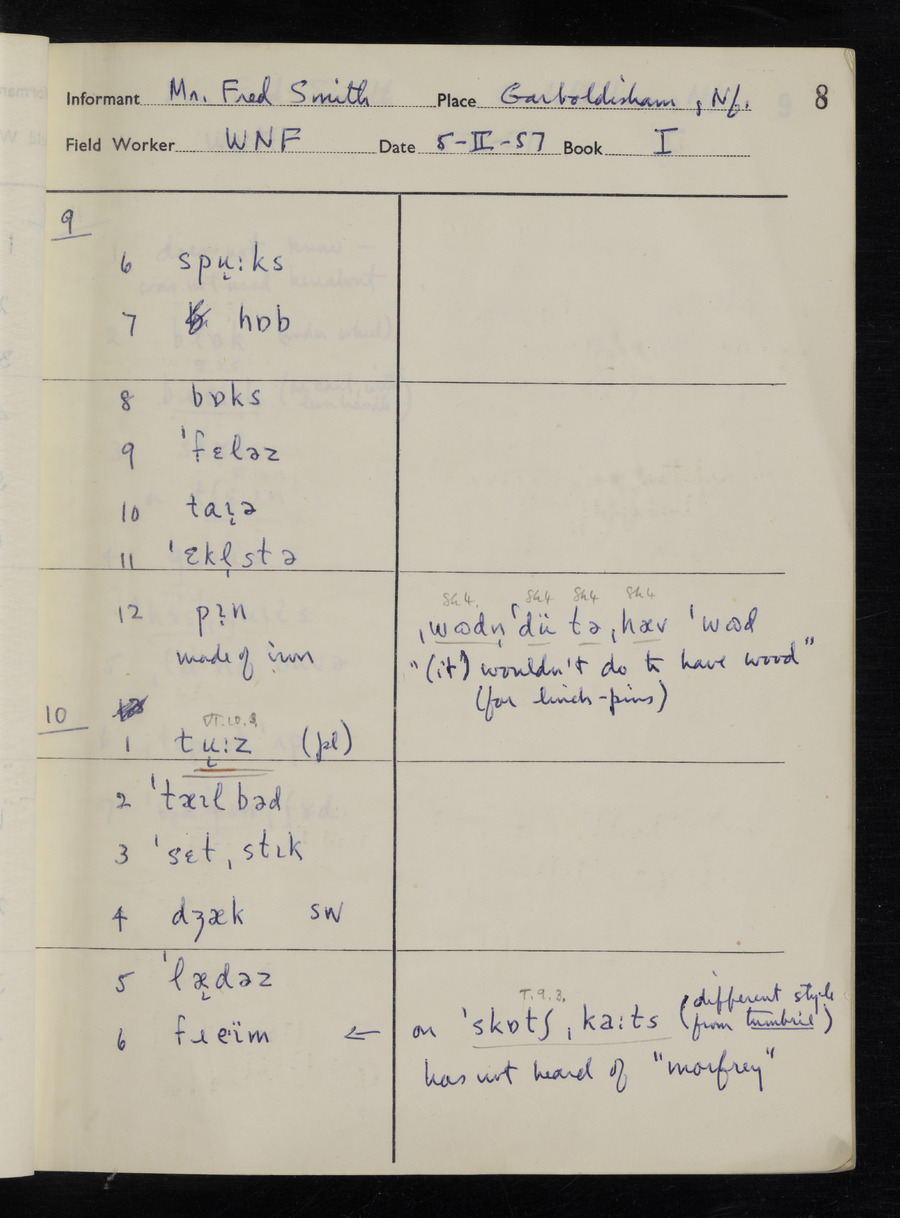 Informant Mr. Fred Smith Place Garboldisham, Nf. 8
Field Worker WNF Date 5-II-57 Book I
9
6 spu̞:ks
7 hɒb
8 bɒks
9 ˈfɛləz
10 taɪ̞ə
11 ˈɛkl̩stə
12 pɪ̞n
made of iron
Sh4. Sh4 Sh4 Sh4
ˌwʊdn̩ ˈdü tə ˌhæv ˈwʊd
"(it) wouldn't do to have wood"
(for linch-pins)
10
VI.10.3.
1 tu̞:z (pl)
2 ˈtæɪlbəd
3 ˈsɛtˌstɪk
4 dʒæk SW
5 ˈlæ̞dəz
6 fɹeïm ←
T.9.3.
on ˈskɒtʃˌka:ts (different style from tumbril)
has not heard of "morfrey"